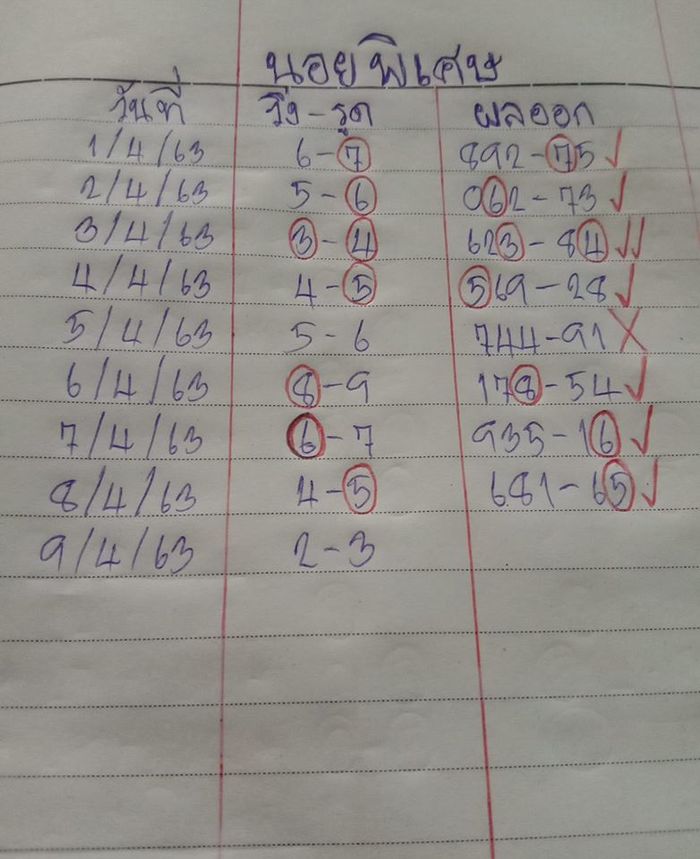 นอยพิเศษ
วันที่ วิ่ง-รูด ผลออก
1/4/63 6-7 892-75 ✓
2/4/63 5-6 062-73 ✓
3/4/63 3-4 623-84 ✓✓
4/4/63 4-5 569-28 ✓
5/4/63 5-6 744-91 X
6/4/63 8-9 178-54 ✓
7/4/63 6-7 935-16 ✓
8/4/63 4-5 681-65 ✓
9/4/63 2-3